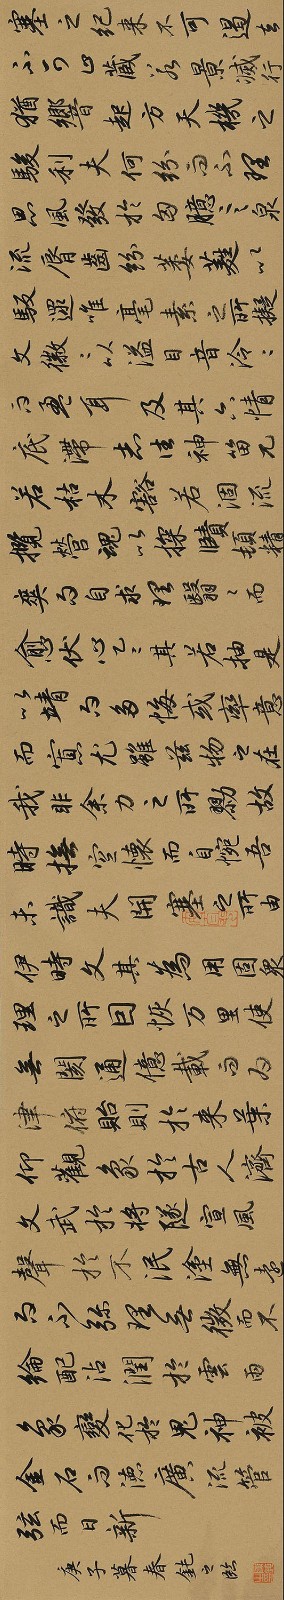 塞之紀来不可遏去
不可止藏若景滅行
猶響起方天機之
駿利夫何紛而不理
思風發於匈臆言泉
流脣齒紛葳蕤以
馺遝唯毫素之所擬
文徽々以溢目音泠々
而盈耳及其六情
底滯志往神留兀
若枯木豁若涸流
攬營魂以探賾頓精
爽而自求理翳々而
愈伏思乙々其若抽是
以竭而多悔或率意
而寡尤雖茲物之在
我非余力之所勠故
時撫空懷而自惋吾
未識夫開塞之所由
伊時文其為用固衆
理之所因恢万里使
無閡通億載而為
津俯貽則於来葉
仰觀象於古人濟
文武於將隧宣風
聲於不泯塗無遠
而不彌理無微而不
綸配沾潤於雲雨
象變化於鬼神被
金石而德廣流管
弦而日新
庚子暮春鈍之臨